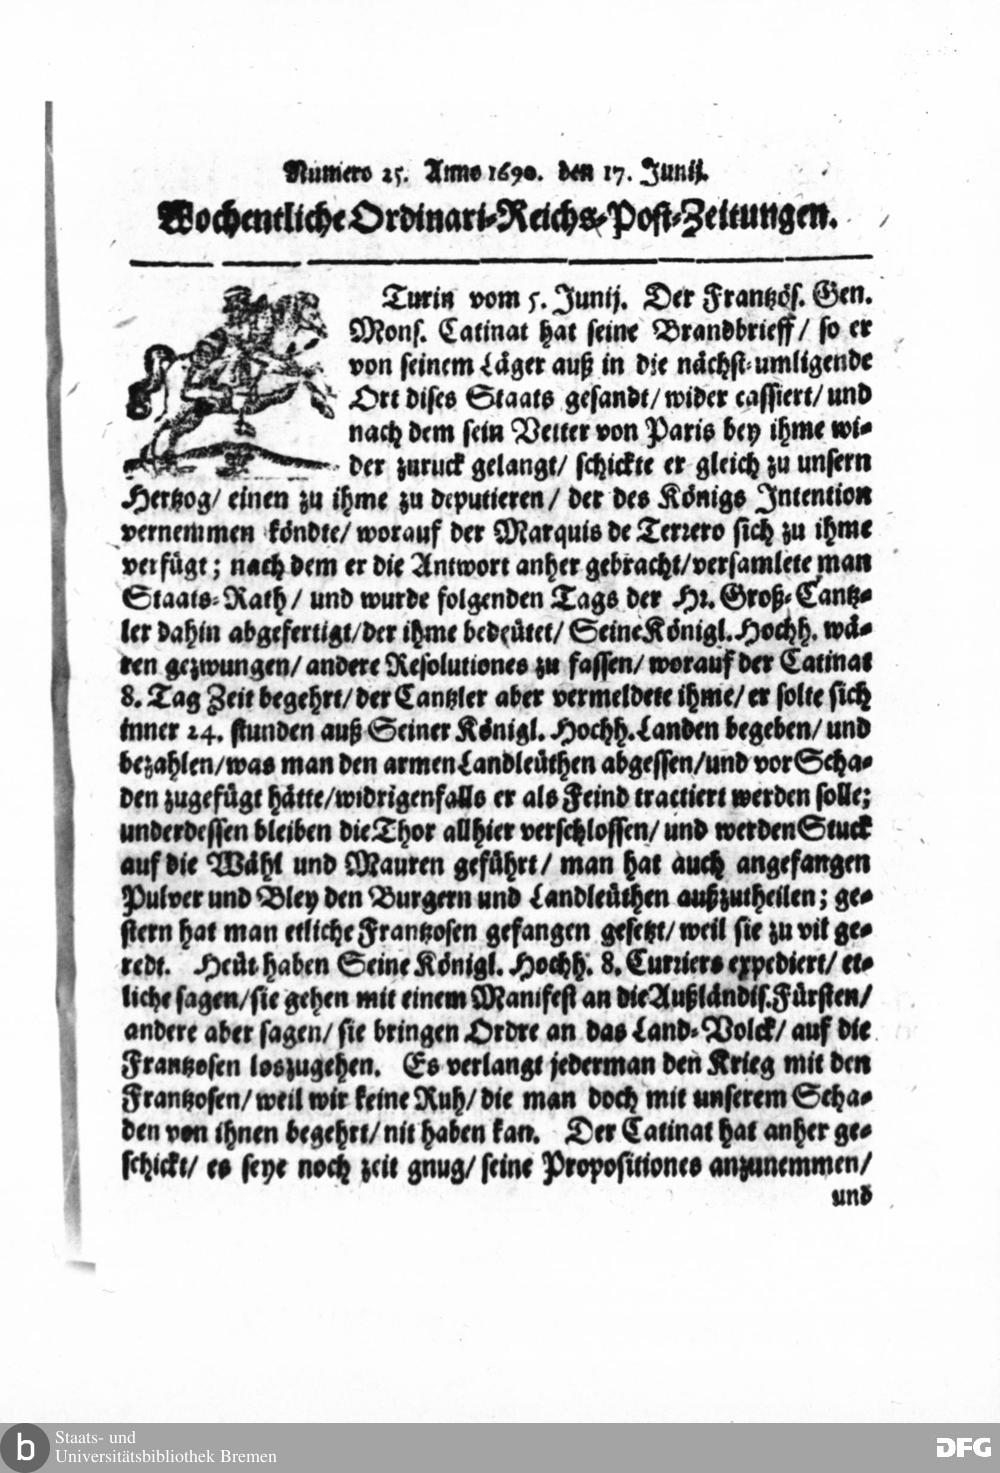 Numero 25. Anno 1690. den 17. Junij.
Wochentliche Ordinari-Reichs-Post-Zeitungen.
Turin vom 5. Junij. Der Frantzös. Gen.
Mons. Catinat hat seine Brandbrieff/ so er
von seinem Läger auß in die nächst-umligende
Ort dises Staats gesandt/ wider cassiert/ und
nach dem sein Vetter von Paris bey ihme wi-
der zuruck gelangt/ schickte er gleich zu unsern
Hertzog/ einen zu ihme zu deputieren/ der des Königs Intention
vernemmen köndte/ worauf der Marquis de Terrero sich zu ihme
verfügt; nach dem er die Antwort anher gebracht/ versamlete man
Staats-Rath/ und wurde folgenden Tags der Hr. Groß-Cantz-
ler dahin abgefertigt/ der ihme bedeütet/ Seine Königl. Hochh. wä-
ren gezwungen/ andere Resolutiones zu fassen/ worauf der Catinat
8. Tag Zeit begehrt/ der Cantzler aber vermeldete ihme/ er solte sich
inner 24. stunden auß Seiner Königl. Hochh. Landen begeben/ und
bezahlen/ was man den armen Landleüthen abgessen/ und vor Scha-
den zugefügt hätte/ widrigenfalls er als Feind tractiert werden solle;
underdessen bleiben die Thor allhier verschlossen/ und werden Stuck
auf die Wähl und Mauren geführt/ man hat auch angefangen
Pulver und Bley den Burgern und Landleüthen außzutheilen; ge-
stern hat man etliche Frantzosen gefangen gesetzt/ weil sie zu vil ge-
redt. Heüt haben Seine Königl. Hochh. 8. Curriers expediert/ et-
liche sagen/ sie gehen mit einem Manifest an die Außländis. Fürsten/
andere aber sagen/ sie bringen Ordre an das Land-Volck/ auf die
Frantzosen loszugehen. Es verlangt jederman den Krieg mit den
Frantzosen/ weil wir keine Ruh/ die man doch mit unserem Scha-
den von ihnen begehrt/ nit haben kan. Der Catinat hat anher ge-
schickt/ es seye noch zeit gnug/ seine Propositiones anzunemmen/
und
b Staats- und
Universitätsbibliothek Bremen
DFG